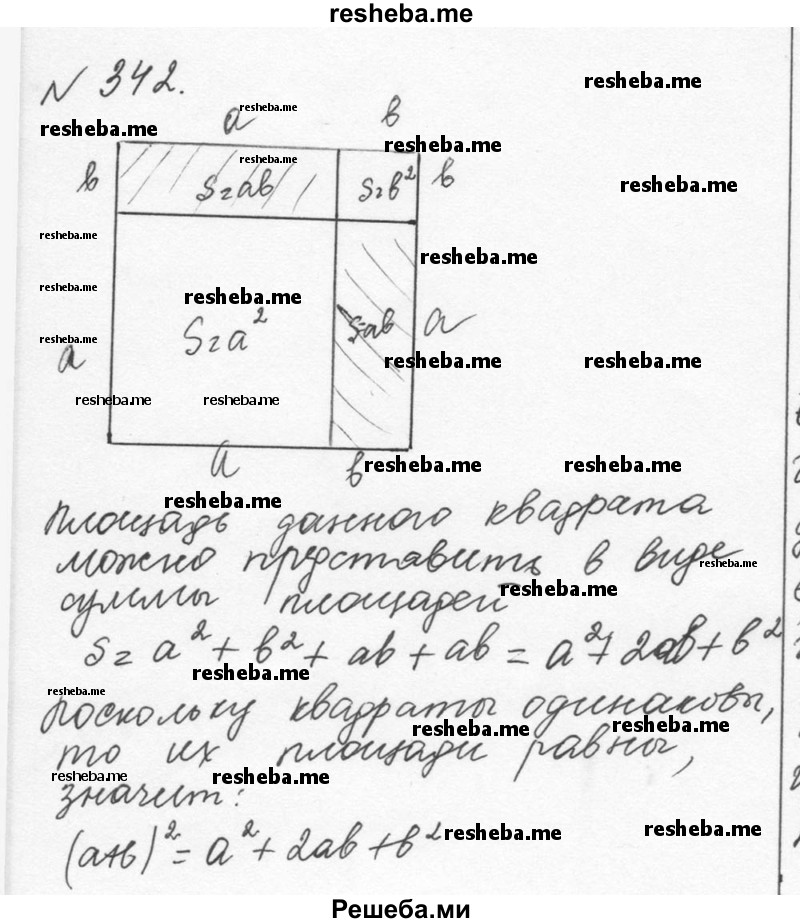 resheba.me
N 342.
resheba.me
a resheba.me в
resheba.me resheba.me
в S=ab resheba.me S=b² в
resheba.me
resheba.me
resheba.me
resheba.me
resheba.me
S=a² S=ab a
resheba.me
a
resheba.me resheba.me
resheba.me resheba.me
a в
resheba.me resheba.me
resheba.me
Площадь данного квадрата
можно представить в виде
resheba.me
суммы площадей
resheba.me
S = a² + в² + ав + ав = a² + 2ав + в²
resheba.me
resheba.me
Поскольку квадраты одинаковы,
resheba.me resheba.me
то их площади равны,
resheba.me resheba.me
значит:
(а+в)² = a² + 2ав + в²
resheba.me resheba.me
Решеба.ми